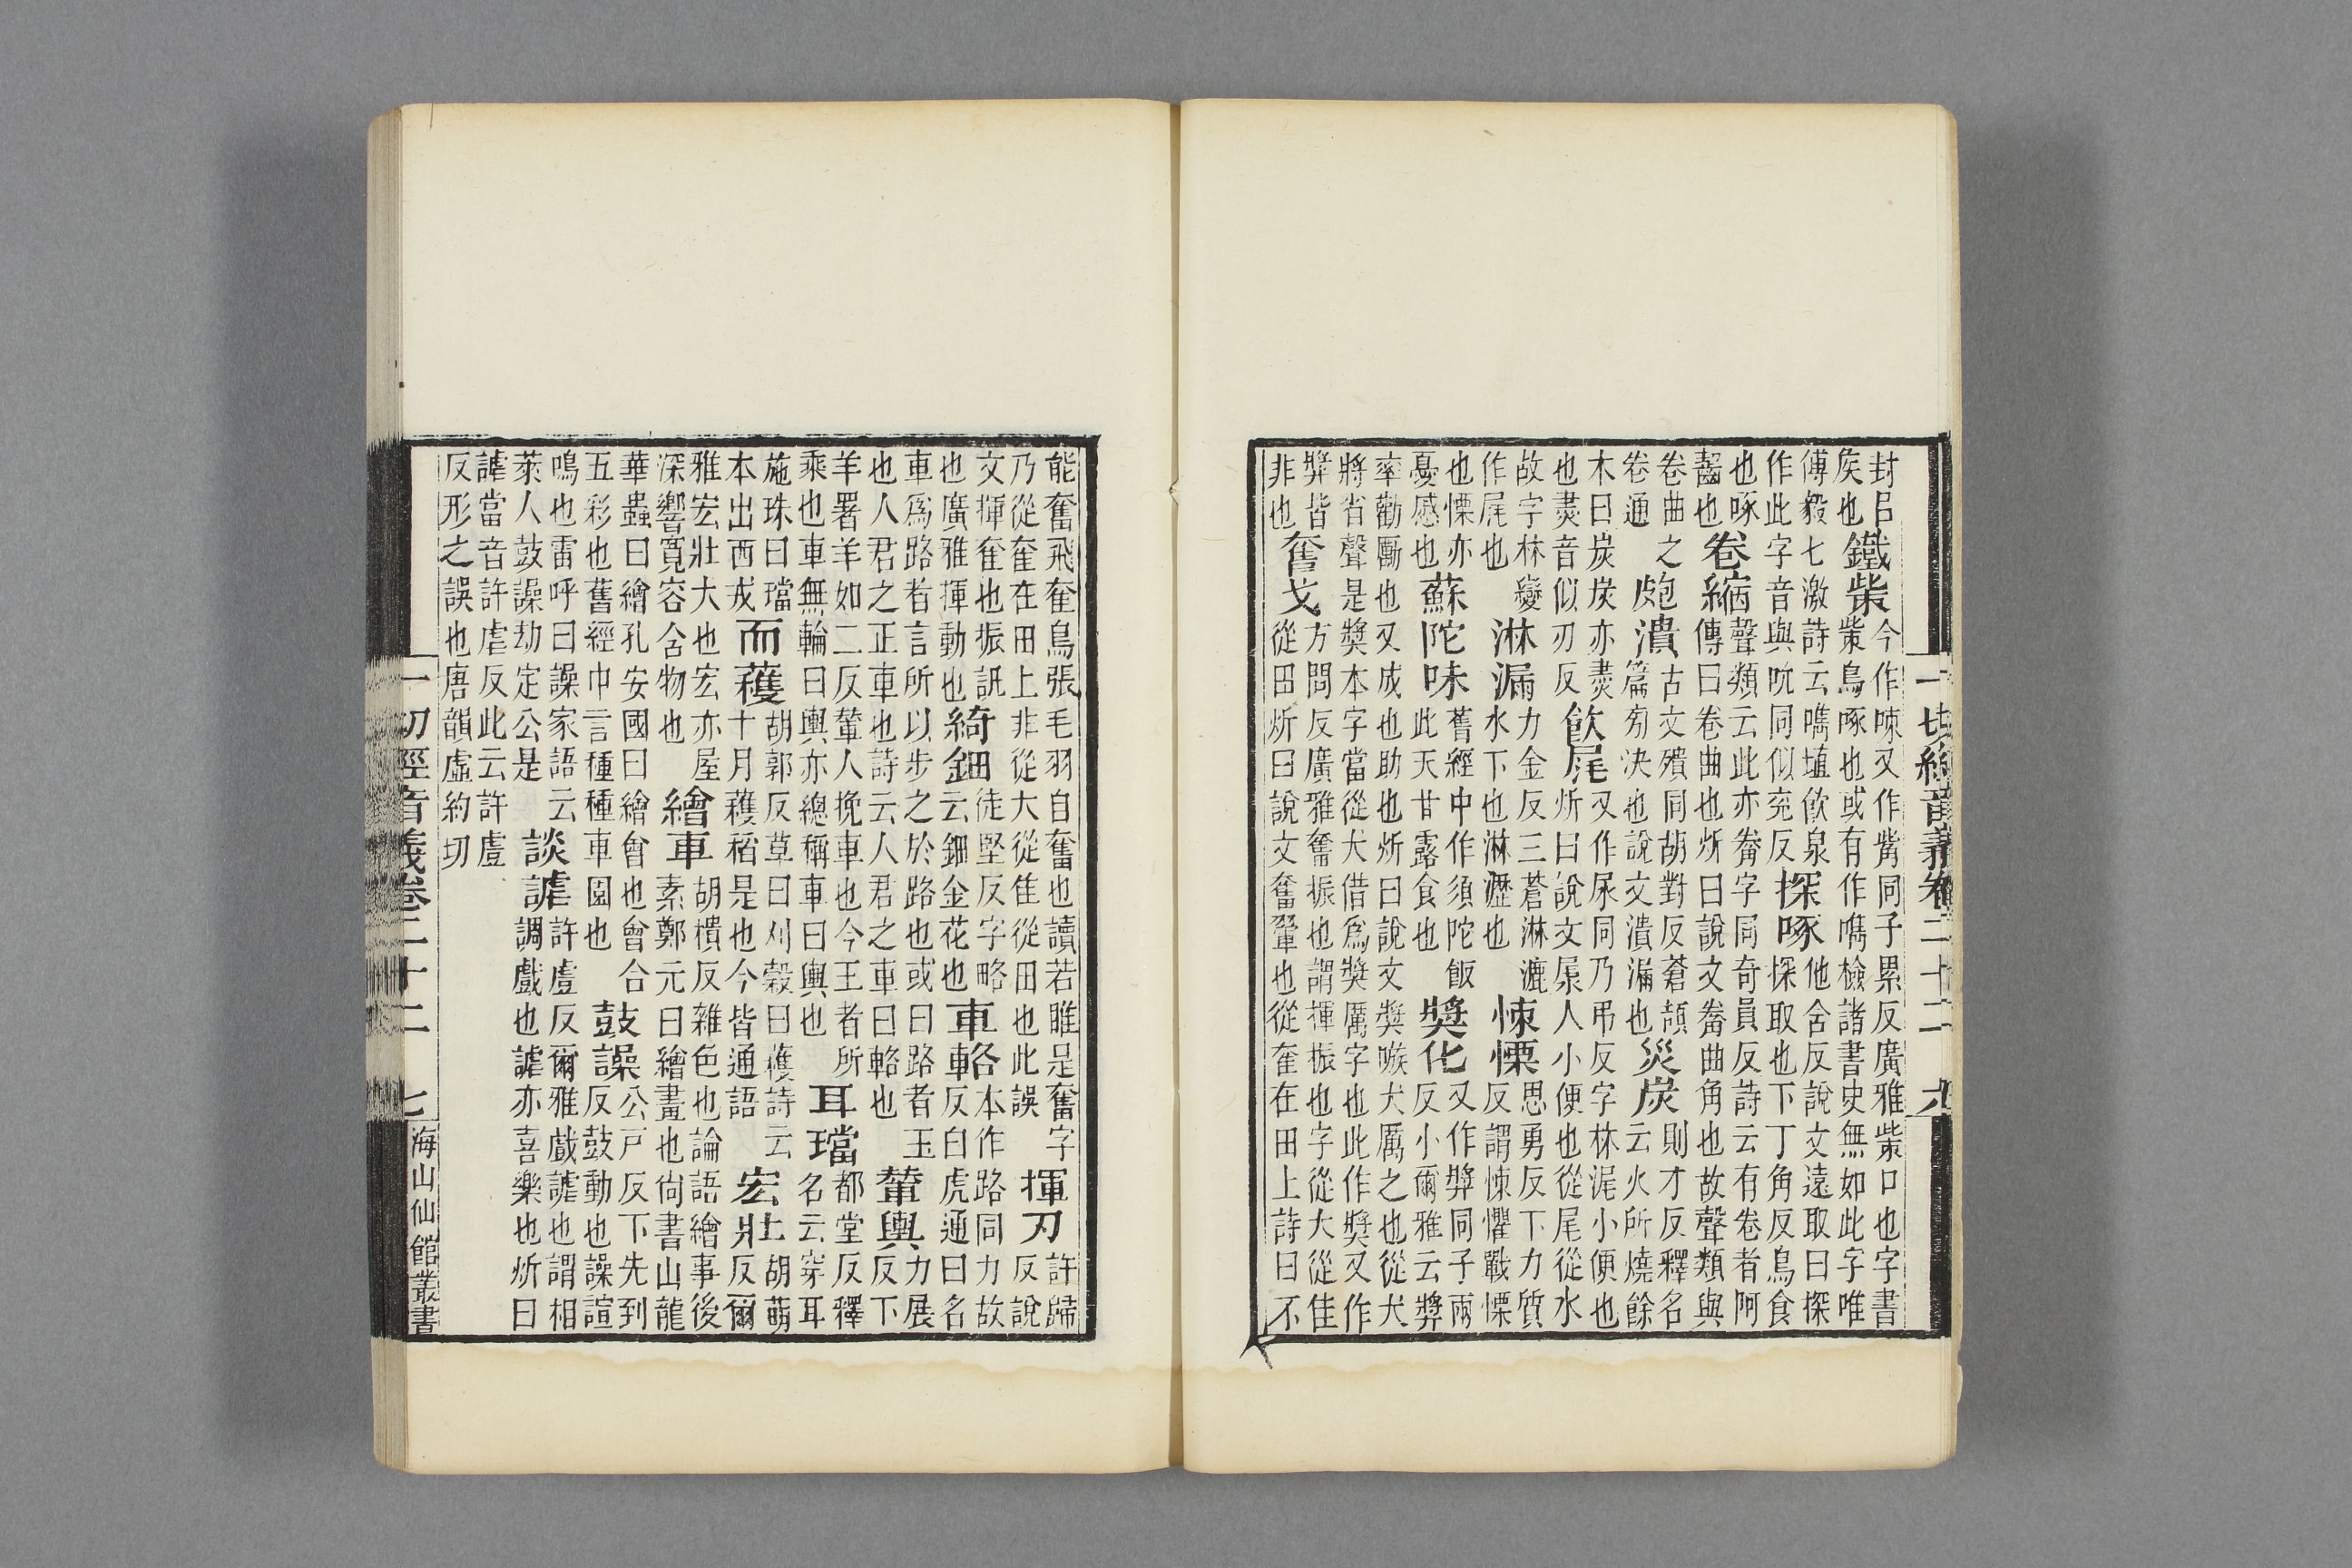 一切經音義卷二十二 九
封㠯矦也鐵㭰今作㖩又作觜同子累反廣雅㭰口也字書㭰鳥啄也或有作噣檢諸書史無如此字唯
傅毅七激詩云噣埴飲泉作此字音與吮同似兖反探啄他舍反說文遠取曰探探取也下丁角反鳥食
也啄齧也卷縮聲類云此亦觠字同奇員反詩云有卷者阿傳曰卷曲也炘曰說文觠曲角也故聲類與
卷曲之卷通皰潰古文殨同胡對反蒼頡篇㓨決也說文潰漏也災炭則才反釋名云火所燒餘
木曰炭炭亦㶳也㶳音似刃反飲尾又作尿同乃弔反字林㞙小便也炘曰說文㞙人小便也從尾從水
故字林變作尾也淋漏力金反三蒼淋漉水下也淋瀝也悚慄思勇反下力質反謂悚懼戰慄
也慄亦憂慼也蘇陀味舊經中作須陀飯此天甘露食也獎化又作弊同子兩反小爾雅云獎
率勸勵也又成也助也炘曰說文獎嗾犬厲之也從犬將省聲是獎本字當從犬借爲獎厲字也此作獎又作
弊皆非也奮戈方問反廣雅奮振也謂揮振也字從大從隹從田炘曰說文奮翬也從奞在田上詩曰不
能奮飛奞鳥張毛羽自奮也讀若睢是奮字乃從奞在田上非從大從隹從田也此誤揮刃許歸反說
文揮奞也振訊也廣雅揮動也綺鈿徒堅反字略云鈿金花也車輅本作路同力故反白虎通曰名
車爲路者言所以步之於路也或曰路者玉也人君之正車也詩云人君之車曰輅也輦輿力展反下
羊署羊如二反輦人挽車也今王者所乘也車無輪曰輿亦總稱車曰輿也耳璫都堂反釋名云穿耳
施珠曰璫本出西戎而穫胡郭反草曰刈穀曰穫詩云十月穫稻是也今皆通語宏壯胡萌反爾
雅宏壯大也宏亦屋深響寬容舍物也繪車胡樻反雜色也論語繪事後素鄭元曰繪畫也尙書山龍
華蟲曰繪孔安國曰繪會也會合五彩也舊經巾言種種車圍也鼓譟公戸反下先到反鼓動也譟諠
鳴也雷呼曰譟家語云萊人鼓譟劫定公是談謔許虐反爾雅戲謔也謂相調戲也謔亦喜樂也炘曰
謔當音許虐反此云許虗反形之誤也唐韻虛約切
一切經音義卷二十二 七 海山仙館叢書